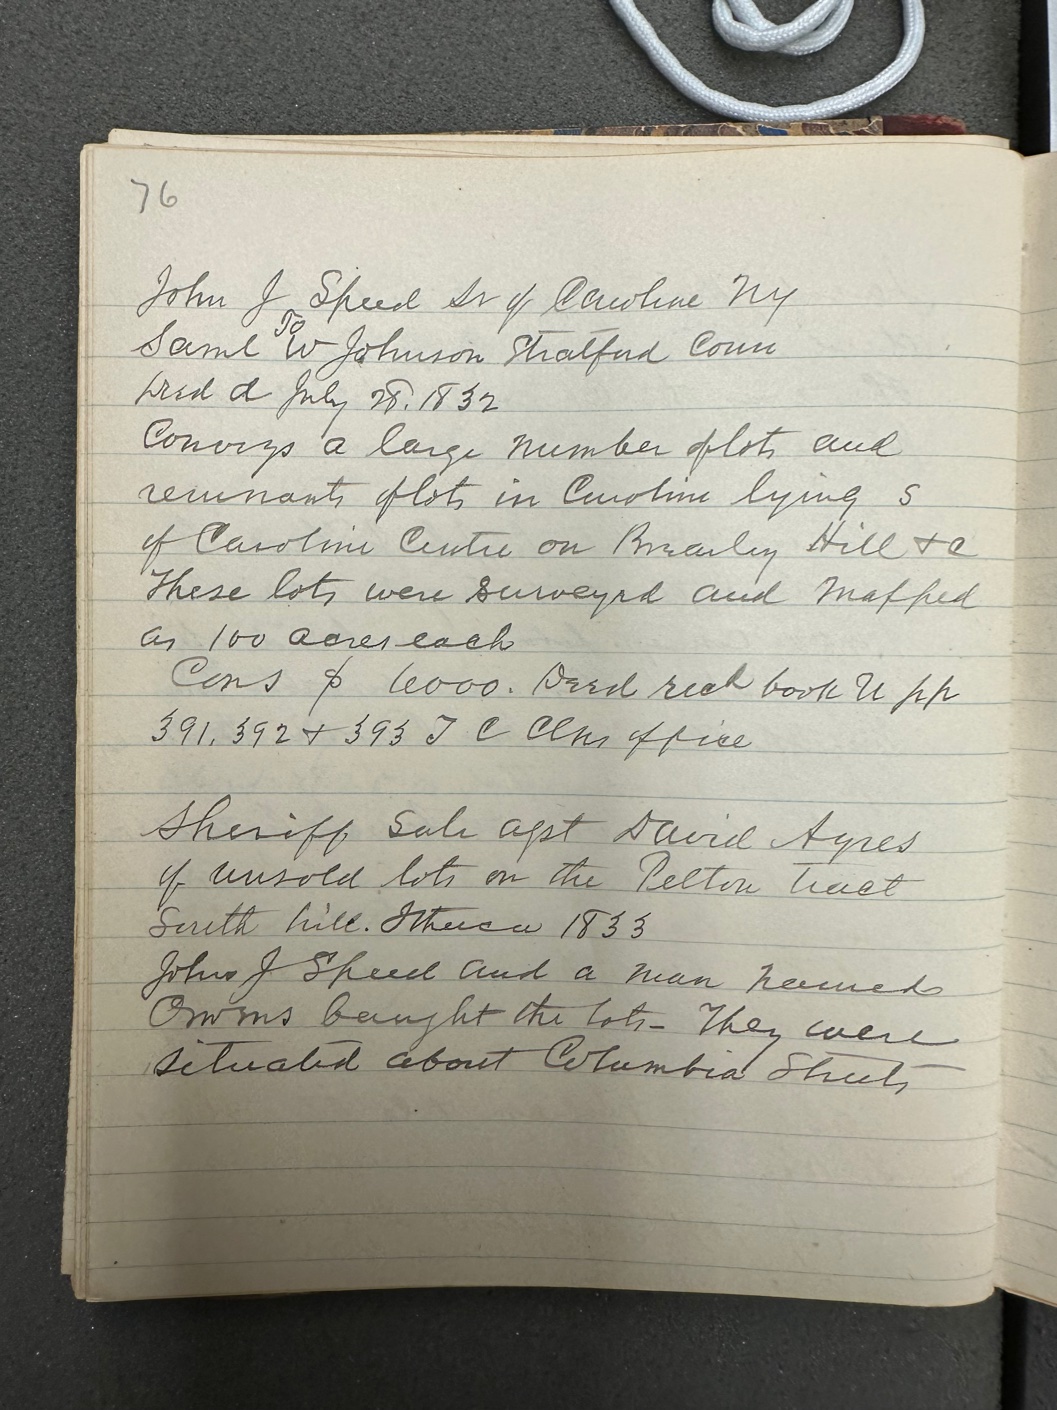 76
John J Speed Sr of Caroline NY
To
Saml W Johnson Stratford Conn
Deed d July 28. 1832
Conveys a large number of lots and
remnants of lots in Caroline lying S
of Caroline Centre on Brearley Hill &c
These lots were surveyed and Mapped
as 100 acres each
Cons $ 6000. Deed recd book U pp
391, 392 & 393 T C Clks office
Sheriff Sale agst David Ayres
of unsold lots on the Pelton Tract
South hill. Ithaca 1833
John J Speed and a man named
Owens baught the lots - They were
situated about Columbia Streets